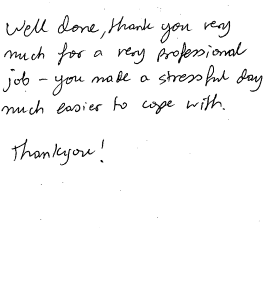 Well done, thank you very
much for a very professional
job - you made a stressful day
much easier to cope with.
Thankyou!